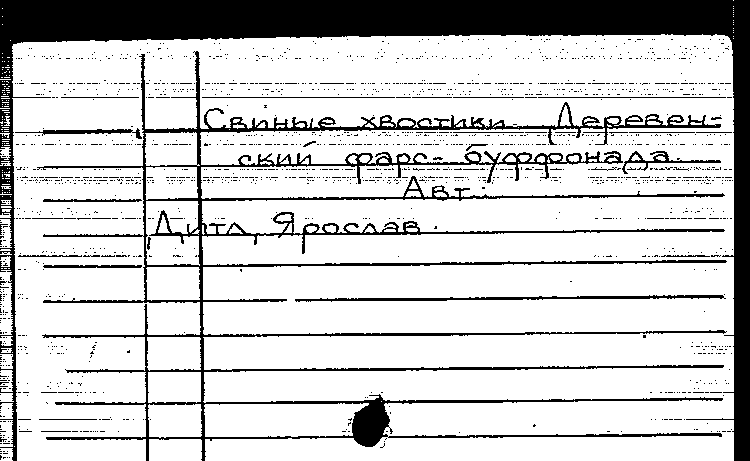 Свиные хвостики. Деревен-
ский фарс-буффонада.
Авт.:
Дитл, Ярослав.